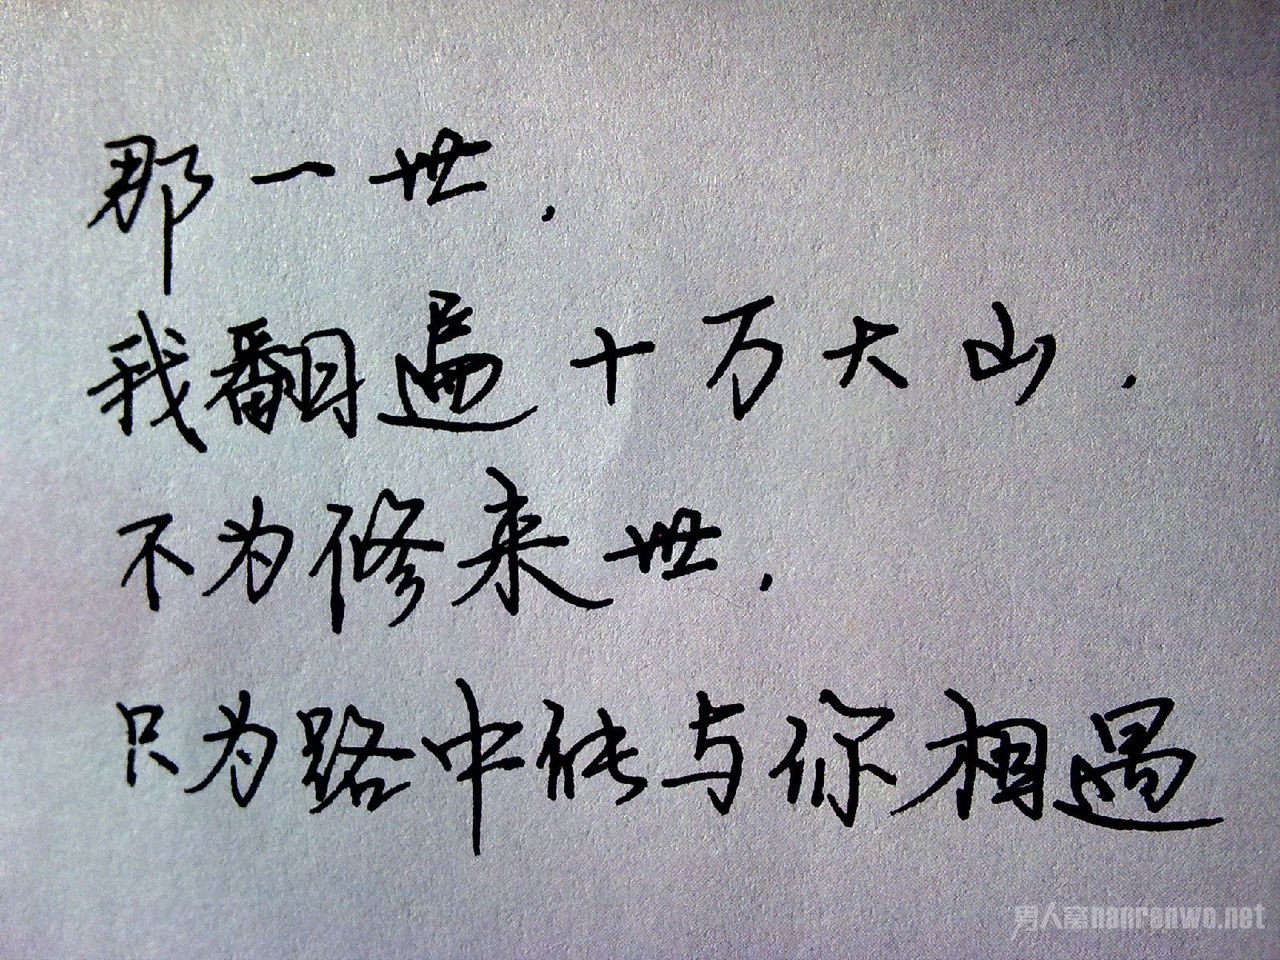 那一世.
我翻遍十万大山.
不为修来世.
只为路中能与你相遇
男人窝nanrenwo.net